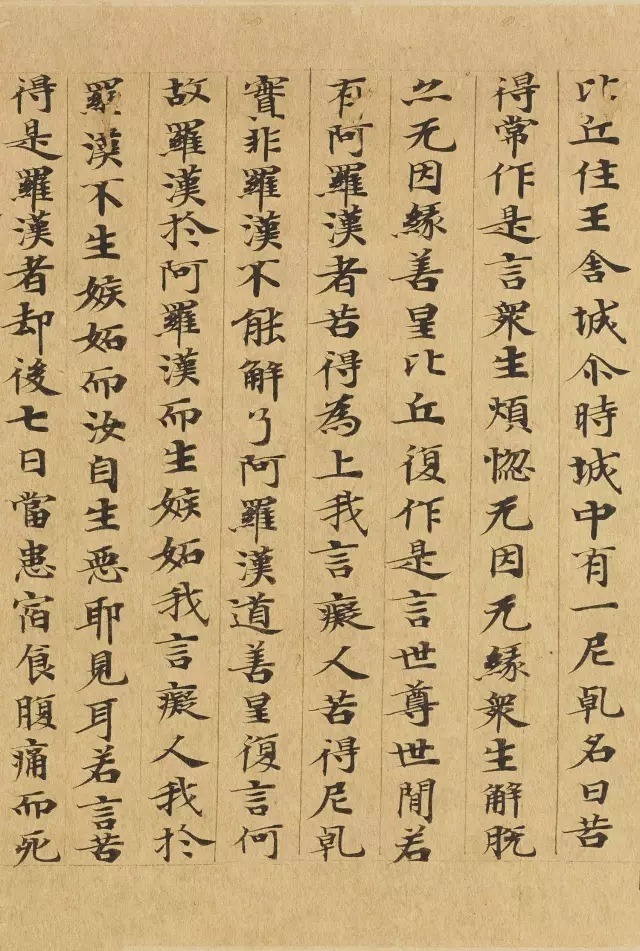 比丘住王舍城尒時城中有一尼乹名曰苦
得常作是言衆生煩惱无因无緣衆生解脫
亦无因緣善星比丘復作是言世尊世閒若
有阿羅漢者苦得為上我言癡人苦得尼乹
實非羅漢不能解了阿羅漢道善星復言何
故羅漢於阿羅漢而生嫉妬我言癡人我於
羅漢不生嫉妬而汝自生惡耶見耳若言苦
得是羅漢者却後七日當患宿食腹痛而死